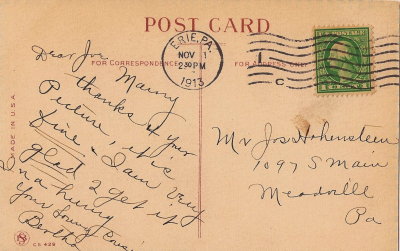 POST CARD
ERIE, PA.
NOV 1
2 30 PM
1913
1
C
FOR CORRESPONDENCE
FOR ADDRESS ONLY
MADE IN U.S.A.
Dear Joe
Many
thanks for your
Picture, it is
fine & I am very
glad 2 get it
In a hurry
Your loving
Bertha
Mr Jos Hohenstein
1097 S Main
Meadville
Pa
C.S. 429